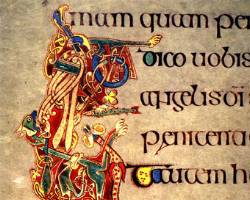 gmam quam per
Dico uobis
angelis dī
penitentia
autem h